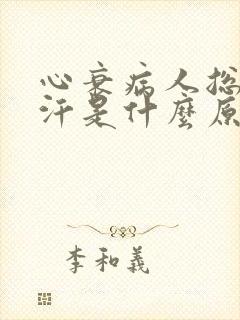 心衰病人总
汗是什麼原
李和義